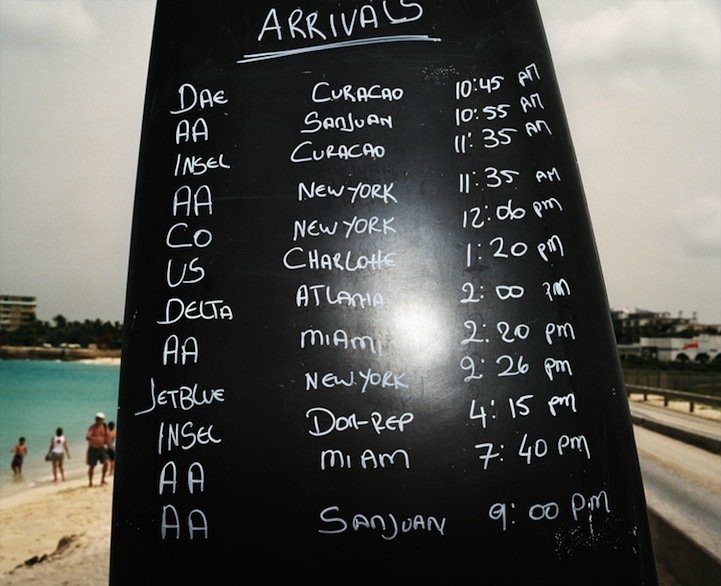 ARRIVALS
DAE CURACAO 10:45 AM
AA SANJUAN 10:55 AM
INSEL CURACAO 11:35 AM
AA NEW YORK 11:35 AM
CO NEW YORK 12:06 PM
US CHARLOTTE 1:20 PM
DELTA ATLANTA 2:00 PM
AA MIAMI 2:20 PM
JETBLUE NEW YORK 2:26 PM
INSEL DOM-REP 4:15 PM
AA MIAMI 7:40 PM
AA SANJUAN 9:00 P.M